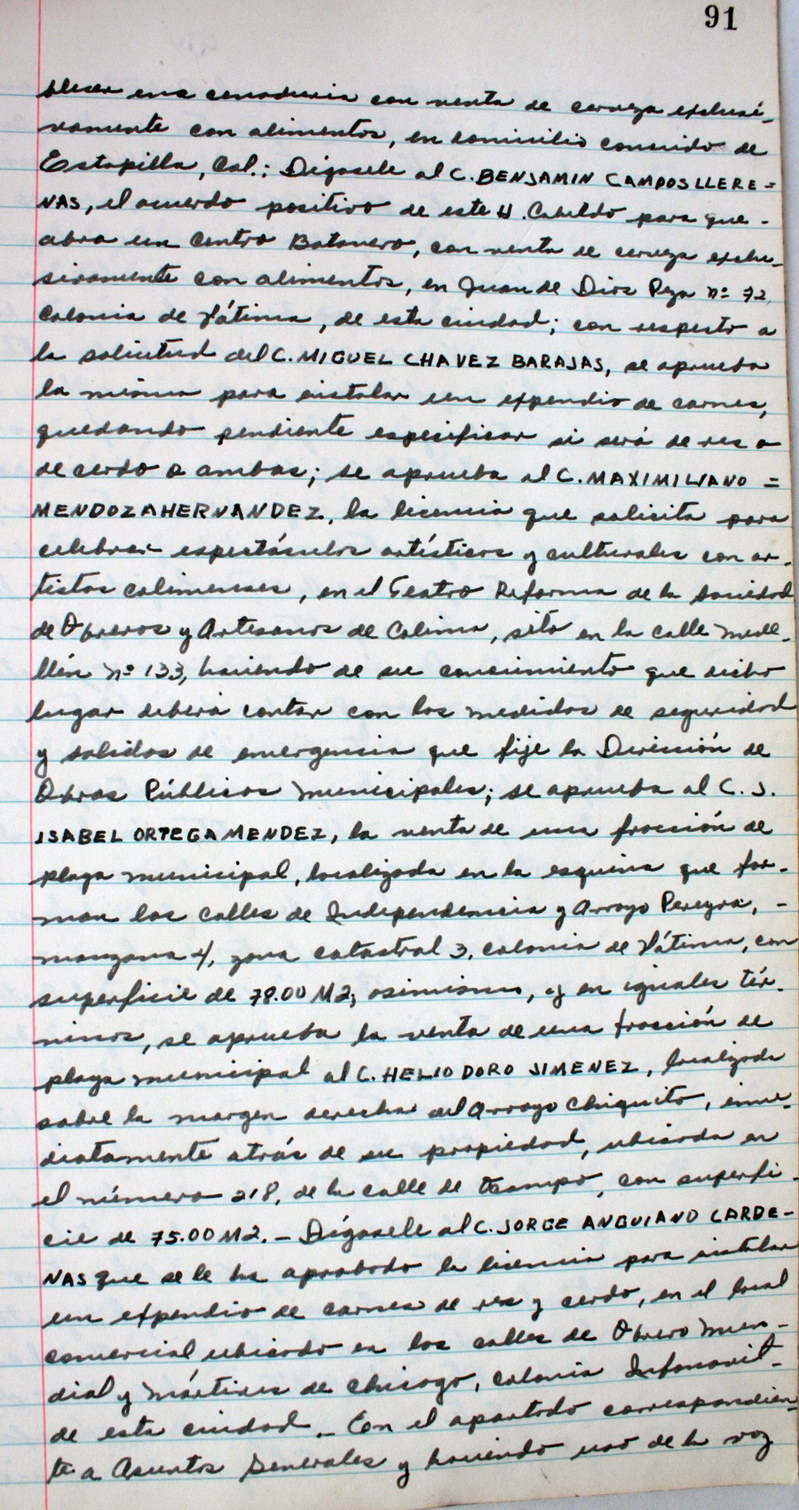 91
blecer una cenaduría con venta de cerveza exclusi-
vamente con alimentos, en domicilio conocido de
Estapilla, Col.; Dígasele al C. BENJAMIN CAMPOS LLERE=
NAS, el acuerdo positivo de este H. Cabildo para que -
abra un Centro Botanero, con venta de cerveza exclu-
sivamente con alimentos, en Juan de Dios Peza nº 72,
Colonia de Fátima, de esta ciudad; con respecto a
la solicitud del C. MIGUEL CHAVEZ BARAJAS, se aprueba
la misma para instalar un expendio de carnes,
quedando pendiente especificar si será de res o
de cerdo o ambas; se aprueba al C. MAXIMILIANO =
MENDOZA HERNANDEZ, la licencia que solicita para
celebrar espectáculos artísticos y culturales con ar-
tistas colimenses, en el Teatro Reforma de la Sociedad
de Obreros y Artesanos de Colima, sito en la calle Mede-
llín nº 133, haciendo de su conocimiento que dicho
lugar deberá contar con las medidas de seguridad
y salidas de emergencia que fije la Dirección de
Obras Públicas Municipales; se aprueba al C. J.
ISABEL ORTEGA MENDEZ, la venta de una fracción de
plaza municipal, localizada en la esquina que for-
man las calles de Independencia y Arroyo Pereyra, -
manzana 4, zona catastral 3, colonia de Fátima, con
superficie de 78.00 M2; asimismo, y en iguales tér-
minos, se aprueba la venta de una fracción de
plaza municipal al C. HELIODORO JIMENEZ, localizada
sobre la margen derecha del Arroyo Chiquito, inme-
diatamente atrás de su propiedad, ubicada en
el número 218, de la calle de Ocampo, con superfi-
cie de 75.00 M2. - Dígasele al C. JORGE ANGUIANO CARDE-
NAS que se le ha aprobado la licencia para instalar
un expendio de carnes de res y cerdo, en el local
comercial ubicado en las calles de Obrero Mun-
dial y Mártires de Chicago, colonia Infonavit-
de esta ciudad. - En el apartado correspondien-
te a Asuntos Generales y haciendo uso de la voz